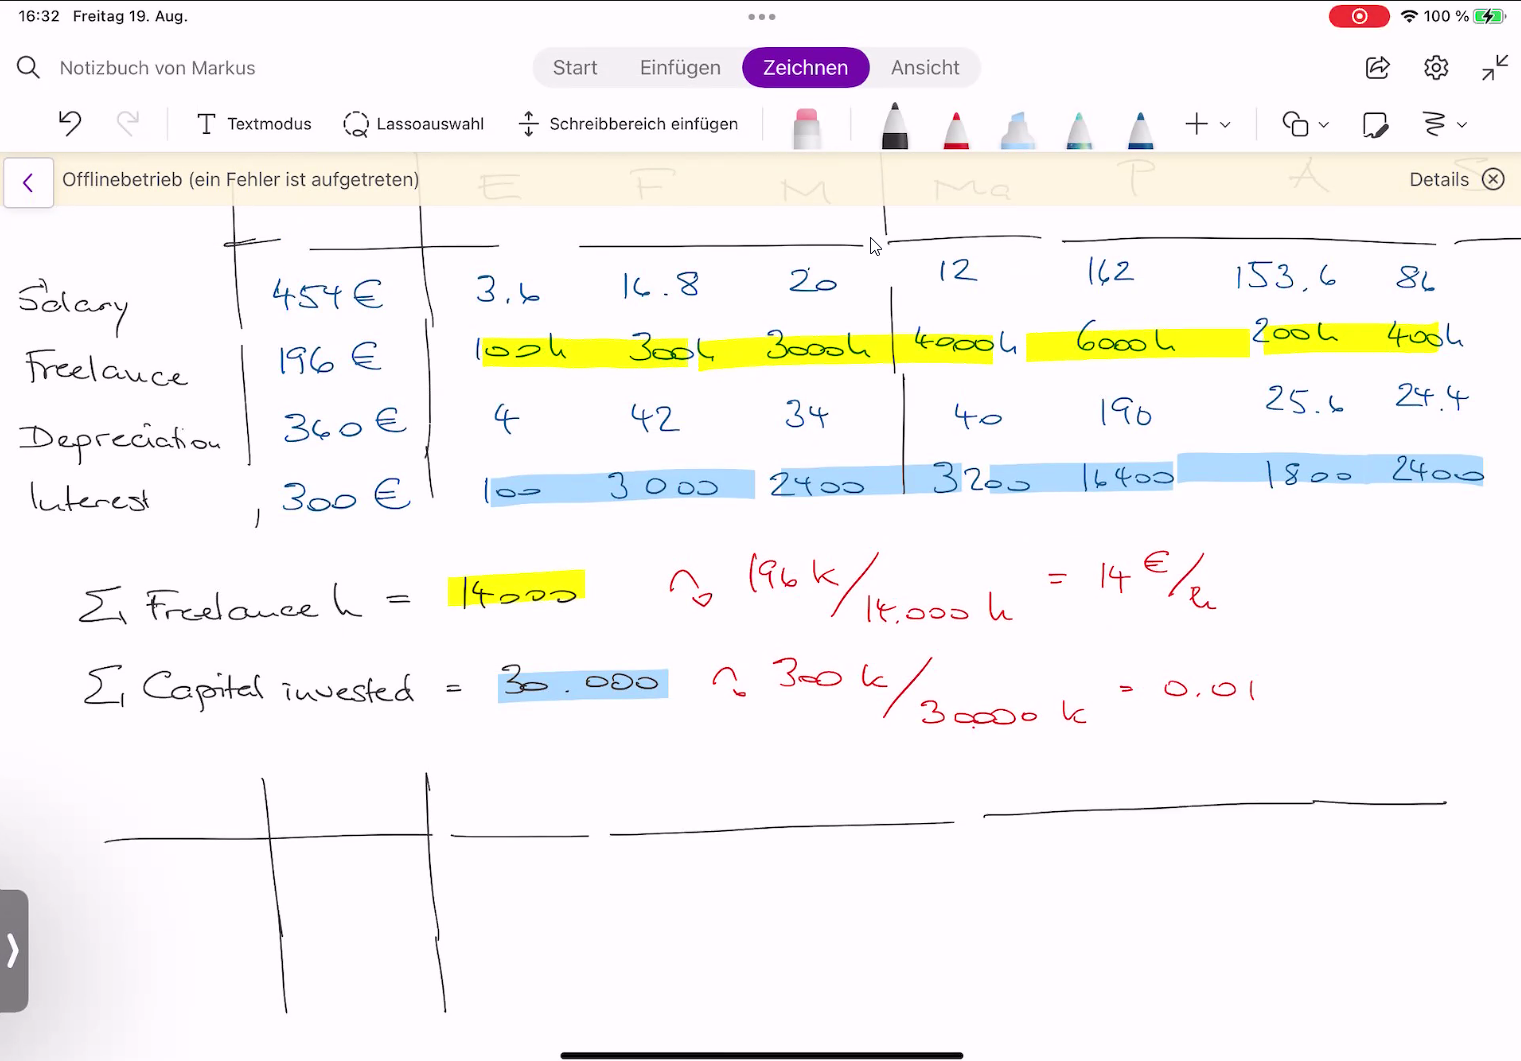 16:32 Freitag 19. Aug. 100 %
Notizbuch von Markus Start Einfügen Zeichnen Ansicht
T Textmodus Lassoauswahl Schreibbereich einfügen
Offlinebetrieb (ein Fehler ist aufgetreten) Details
E F M Ma P A S
Salary 454 € 3.6 16.8 20 12 162 153.6 86
Freelance 196 € 100h 300h 3000h 4000h 6000h 200h 400h
Depreciation 360 € 4 42 34 40 190 25.6 24.4
Interest 300 € 100 3000 2400 3200 16400 1800 2400
Σ Freelance h = 14000 196 k / 14.000 h = 14 €/h
Σ Capital invested = 30.000 300 k / 30000 k = 0.01